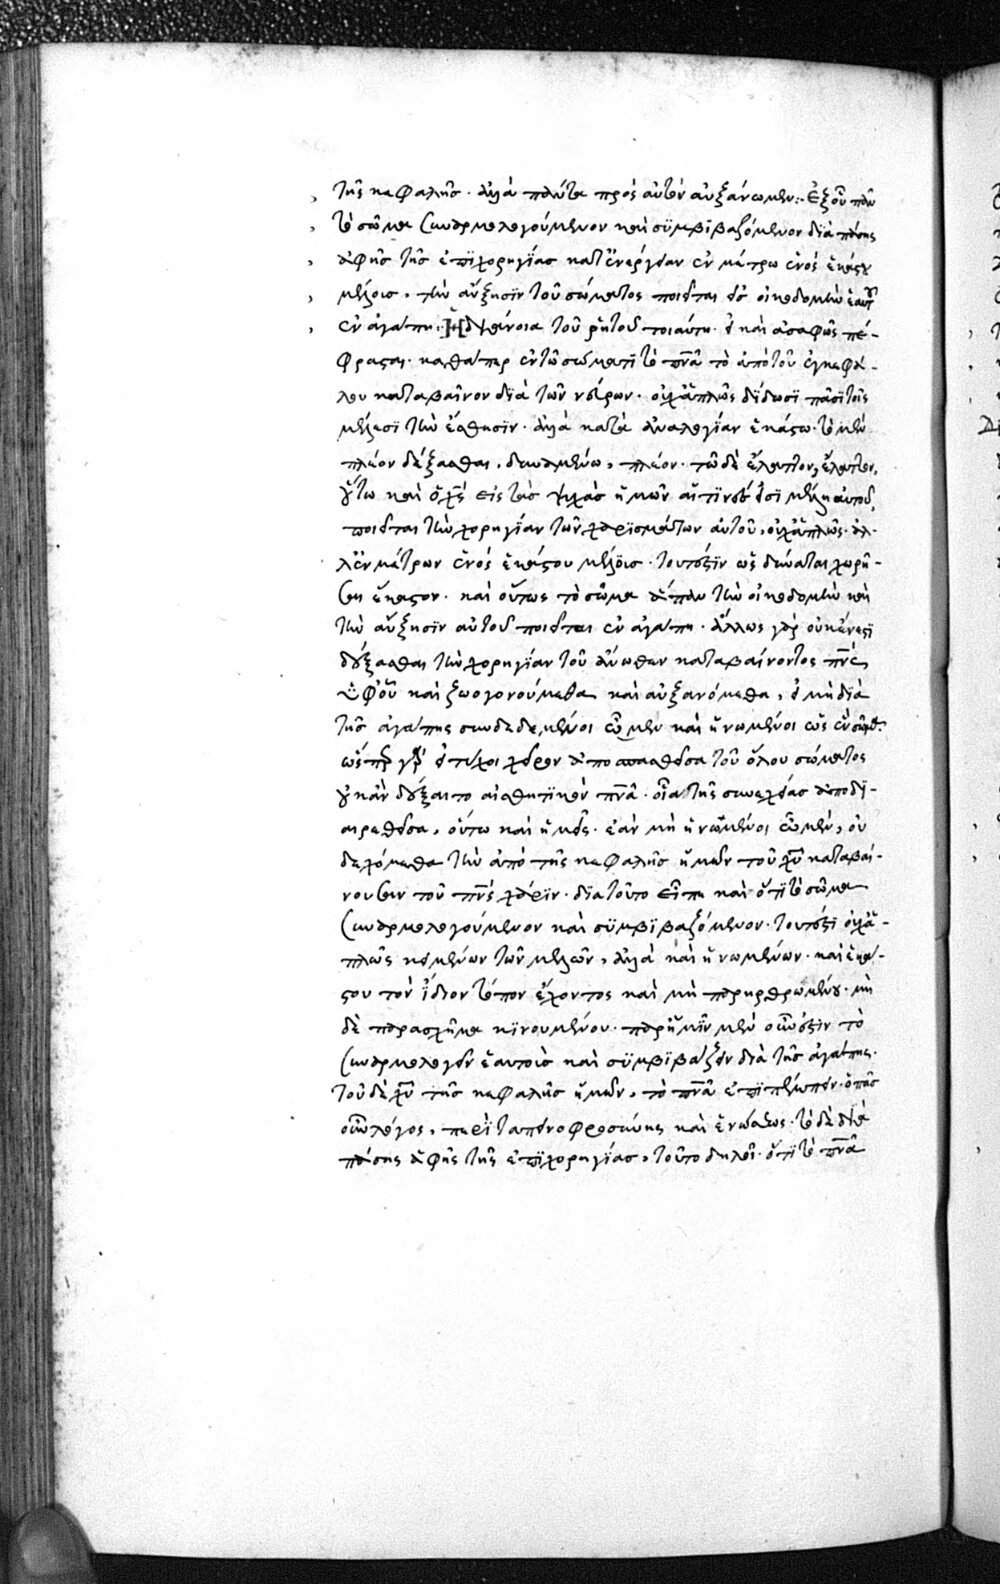 τῆς κεφαλῆς · ἀλλὰ πάντα πρὸς αὐτὸν αὐξάνωμεν :- Ἐξ οὗ πᾶν
τὸ σῶμα συναρμολογούμενον καὶ συμβιβαζόμενον διὰ πάσης
ἁφῆς τῆς ἐπιχορηγίας κατ' ἐνέργειαν ἐν μέτρω ἑνὸς ἑκάστου
μέλους, τὴν αὔξησιν τοῦ σώματος ποιεῖται εἰς οἰκοδομὴν ἑαυτοῦ
ἐν ἀγάπη · διάνοια τοῦ ῥητοῦ τοιαύτη · εἰ καὶ ἀσαφῶς πέ-
φρασται · καθάπερ ἐν τῶ σώματι τὸ πνα τὸ ἀπὸ τοῦ ἐγκεφά-
λου καταβαῖνον διὰ τῶν νεύρων · οὐχ ἁπλῶς δίδωσι πᾶσι τοῖς
μέλεσι τὴν αἴσθησιν · ἀλλὰ κατὰ ἀναλογίαν ἑκάστω · τὸ μὲν
πλέον δέξασθαι, δυναμένω, πλέον · τῶ δὲ ἔλαττον, ἔλαττον,
οὕτω καὶ ὁ χς εἰς τὰς ψυχὰς ἡμῶν αἵτινές εἰσι μέλη αὐτοῦ,
ποιεῖται τὴν χορηγίαν τῶν χαρισμάτων αὐτοῦ, οὐχ ἁπλῶς · ἀλ-
λ' ἐν μέτρω ἑνὸς ἑκάστου μέλους · τουτέστιν ὡς δύναται χωρῆ-
σαι ἕκαστον · καὶ οὕτως τὸ σῶμα ἅπαν τὴν οἰκοδομὴν καὶ
τὴν αὔξησιν αὐτοῦ ποιεῖται ἐν ἀγάπη · ἄλλως γὰρ οὐκ ἔνεστι
δέξασθαι τὴν χορηγίαν τοῦ ἄνωθεν καταβαίνοντος πνς
ὑφ' οὗ καὶ ζωογονούμεθα καὶ αὐξανόμεθα, εἰ μὴ διὰ
τῆς ἀγάπης συνδεδεμένοι ὦμεν καὶ ἡνωμένοι ὡς ἓν σῶμα.
ὥσπερ γὰρ εἰ τύχοι χεῖρα ἀποσπασθεῖσα τοῦ ὅλου σώματος
οὐκ ἂν δέξαιτο αἰσθητικὸν πνα · οἷα τῆς συνεχείας ἀποδι-
αιρεθεῖσα, οὕτω καὶ ἡμεῖς · ἐὰν μὴ ἡνωμένοι ὦμεν, οὐ
δεχόμεθα τὴν ἀπὸ τῆς κεφαλῆς ἡμῶν τοῦ χυ καταβαί-
νουσαν τοῦ πνς χάριν · διὰ τοῦτο εἶπε καὶ ὅτι τὸ σῶμα
συναρμολογούμενον καὶ συμβιβαζόμενον · τουτέστι οὐχ ἁ-
πλῶς κειμένων τῶν μελῶν, ἀλλὰ καὶ ἡνωμένων · καὶ ἑκά-
στου τὸν ἴδιον τόπον ἔχοντος καὶ μὴ παρηρθρωμένου · μὴ
δὲ παρασχῆμα κινουμένου · παρ' ἡμῖν μὲν οὖν ἐστιν τὸ
συναρμολογεῖν ἑαυτοὺς καὶ συμβιβάζειν διὰ τῆς ἀγάπης ·
τοῦ δὲ χυ τῆς κεφαλῆς ἡμῶν, τὸ πνα ἐπιπέμπειν · ὁ πᾶς
οὖν λόγος, περὶ ταπεινοφροσύνης καὶ ἑνώσεως · τὸ δὲ διὰ
πάσης ἁφῆς τῆς ἐπιχορηγίας, τοῦτο δηλοῖ · ὅτι τὸ πνα